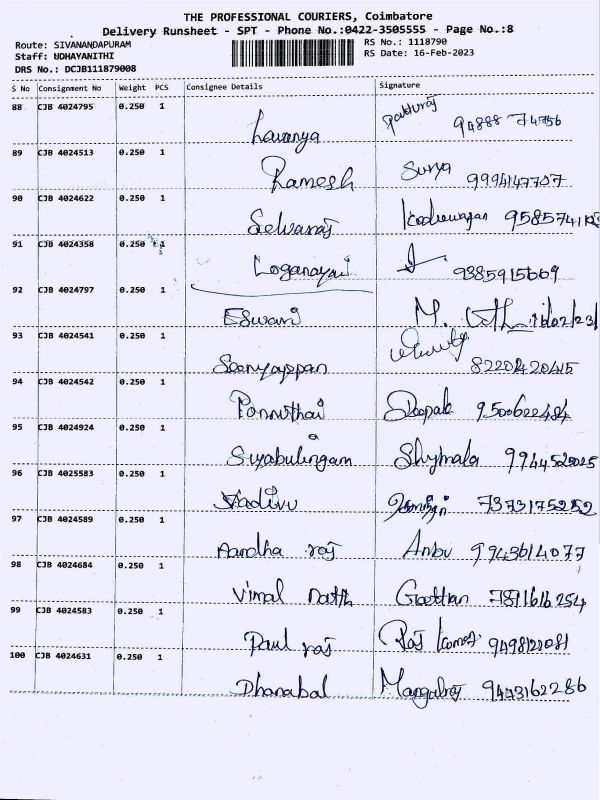 THE PROFESSIONAL COURIERS, Coimbatore
Delivery Runsheet - SPT - Phone No.:0422-3505555 - Page No.:8
Route: SIVANANDAPURAM
Staff: UDHAYANITHI
DRS No.: DCJB111879008
RS No.: 1118790
RS Date: 16-Feb-2023
S No Consignment No Weight PCS Consignee Details Signature
88 CJB 4024795 0.250 1
Lavanya 94888 74756
89 CJB 4024513 0.250 1
Ramesh Surya 9994147707
90 CJB 4024622 0.250 1
Selvaraj
91 CJB 4024358 0.250 1
Loganayaki 9385915669
92 CJB 4024797 0.250 1
Eswari M.
93 CJB 4024541 0.250 1
8220420415
94 CJB 4024542 0.250 1
Ponnuthai Deepak 9500622484
95 CJB 4024924 0.250 1
Sivabulingam Shymala 9944525025
96 CJB 4025583 0.250 1
Vadivu 7373175252
97 CJB 4024589 0.250 1
Aandha raj Anbu 9943614077
98 CJB 4024684 0.250 1
Vimal nath 7811616254
99 CJB 4024583 0.250 1
Paul raj Raj 9498122081
100 CJB 4024631 0.250 1
Dhanabal Mangalraj 9443162286